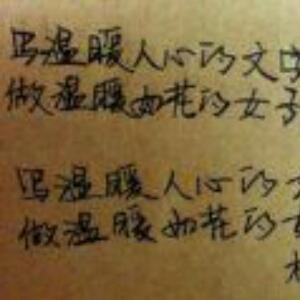 写温暖人心的文字
做温暖如花的女子
写温暖人心的
做温暖如花的